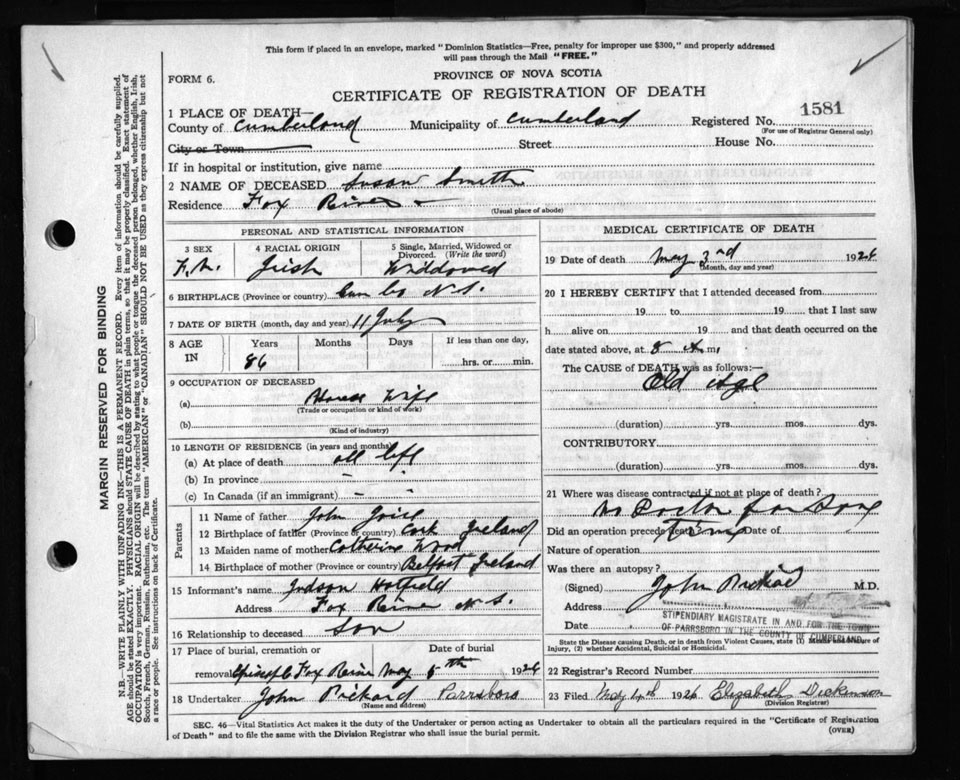 This form if placed in an envelope, marked "Dominion Statistics—Free, penalty for improper use $300," and properly addressed
will pass through the Mail "FREE."
FORM 6.
PROVINCE OF NOVA SCOTIA
CERTIFICATE OF REGISTRATION OF DEATH
1 PLACE OF DEATH—
County of Cumberland Municipality of Cumberland Registered No. 1581
(For use of Registrar General only)
City or Town Street House No.
If in hospital or institution, give name
2 NAME OF DECEASED Susan Smith
Residence Fox River
(Usual place of abode)
PERSONAL AND STATISTICAL INFORMATION
3 SEX 4 RACIAL ORIGIN 5 Single, Married, Widowed or
Divorced. (Write the word)
Irish Widdowed
6 BIRTHPLACE (Province or country) Cum Co N.S.
7 DATE OF BIRTH (month, day and year) 11 July
8 AGE IN Years Months Days If less than one day,
86 hrs. or min.
9 OCCUPATION OF DECEASED
(a) House Wife
(Trade or occupation or kind of work)
(b)
(Kind of industry)
10 LENGTH OF RESIDENCE (in years and months)
(a) At place of death all
(b) In province –
(c) In Canada (if an immigrant) – –
Parents
11 Name of father John
12 Birthplace of father (Province or country) Cork Ireland
13 Maiden name of mother Catherine Wood
14 Birthplace of mother (Province or country) Belfast Ireland
15 Informant's name Judson Hatfield
Address Fox River N.S.
16 Relationship to deceased Son
17 Place of burial, cremation or Date of burial
removal Fox River May 5th 1924
18 Undertaker John Pickard Parrsboro
(Name and address)
MEDICAL CERTIFICATE OF DEATH
19 Date of death May 3rd 1924
(Month, day and year)
20 I HEREBY CERTIFY that I attended deceased from
19 to 19 that I last saw
h alive on 19 and that death occurred on the
date stated above, at 8 m.
The CAUSE of DEATH was as follows:—
Old Age
(duration) yrs. mos. dys.
CONTRIBUTORY
(duration) yrs. mos. dys.
21 Where was disease contracted if not at place of death?
no Doctor for Some
Did an operation precede death? Time Date of
Nature of operation
Was there an autopsy?
(Signed) John Pickard M.D.
Address
STIPENDIARY MAGISTRATE IN AND FOR THE TOWN
Date OF PARRSBORO IN THE COUNTY OF CUMBERLAND
State the Disease causing Death, or in death from Violent Causes, state (1) Means and Nature of
Injury, (2) whether Accidental, Suicidal or Homicidal.
22 Registrar's Record Number
23 Filed May 4th 1924 Elizabeth Dickinson
(Division Registrar)
SEC. 46—Vital Statistics Act makes it the duty of the Undertaker or person acting as Undertaker to obtain all the particulars required in the "Certificate of Registration
of Death" and to file the same with the Division Registrar who shall issue the burial permit.
(OVER)
MARGIN RESERVED FOR BINDING
N.B.—WRITE PLAINLY WITH UNFADING INK—THIS IS A PERMANENT RECORD. Every item of information should be carefully supplied.
AGE should be stated EXACTLY. PHYSICIANS should STATE CAUSE OF DEATH in plain terms, so that it may be properly classified. Exact statement of
OCCUPATION is very important. RACIAL ORIGIN will be described by stating to what people or tongue the deceased person belonged, whether English, Irish,
Scotch, French, German, Russian, Ruthenian, etc. The terms "AMERICAN" or "CANADIAN" SHOULD NOT BE USED as they express citizenship but not
a race or people. See instructions on back of Certificate.